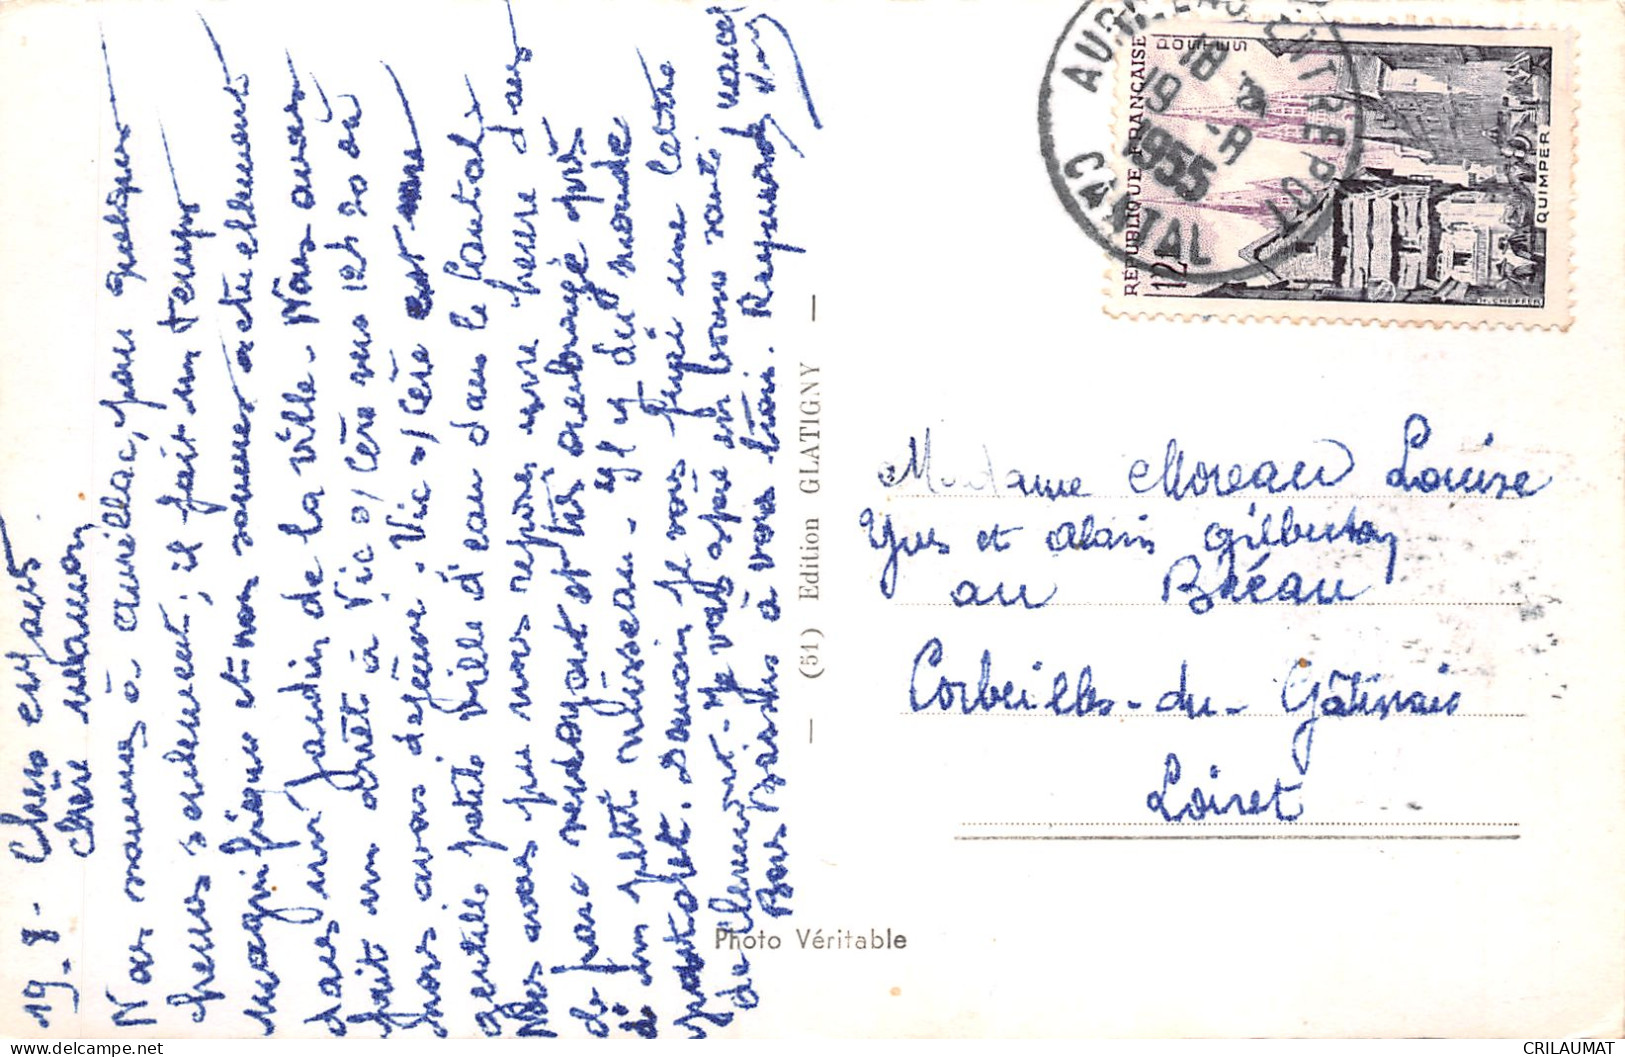 19.8. Chers enfants
Chère maman
Nous sommes à Aurillac, pour quelques
heures seulement, il fait un temps
magnifique et nous sommes actuellement
dans un jardin de la ville. Nous avons
fait un arrêt à Vic s/ Cère vers 12h20 où
nous avons déjeuné. Vic s/ Cère est une
gentille petite ville d'eau dans le Cantal.
Nous avons pu nous reposer une heure dans
le parc verdoyant et très ombragé près
d'un petit ruisseau. Il y a du monde
Demain je vous ferai une lettre
de Clermont. Je vous espère en bonne santé
Bons Baisers à vous tous. Raymonde
— (51) Edition GLATIGNY —
Photo Véritable
AURILLAC ENTREPOT
18 H
19 -8
1955
CANTAL
RÉPUBLIQUE FRANÇAISE
POSTES
12F
QUIMPER
H. CHEFFER
Madame Moreau Louise
Yves et Alain Gilberton
au Bréau
Corbeilles-du-Gâtinais
Loiret
CRILAUMAT